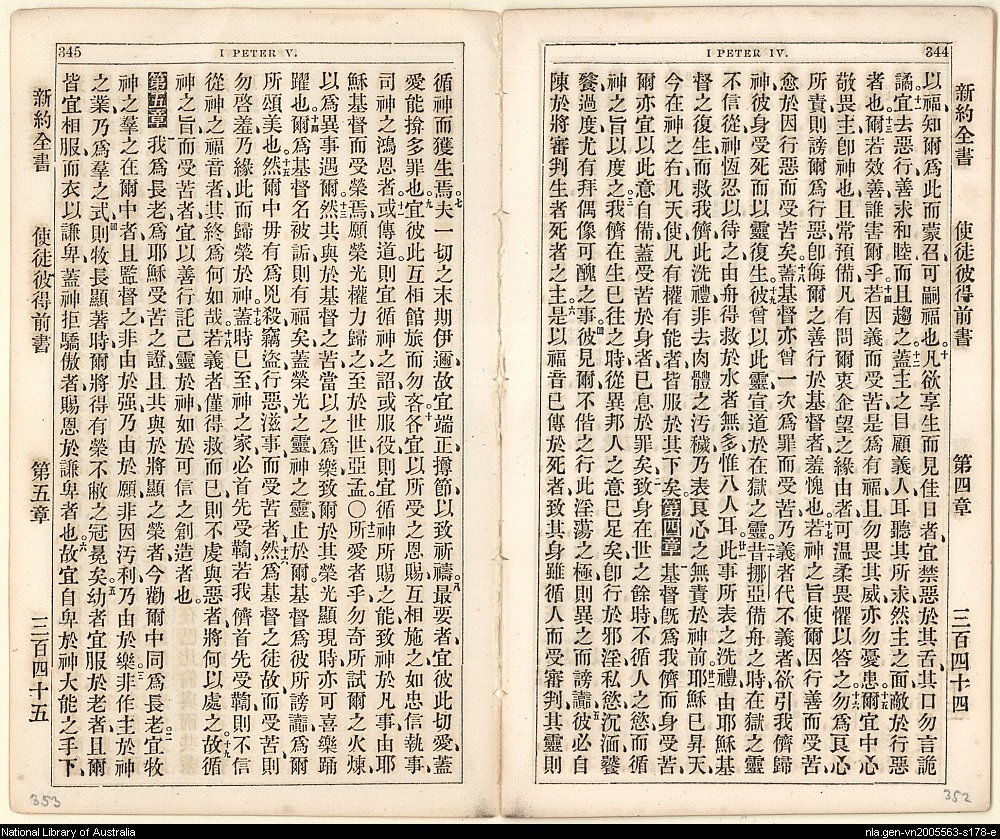 344
I PETER IV.
新約全書 使徒彼得前書 第四章 三百四十四
以福、知爾爲此而蒙召、可嗣福也。凡欲享生而見佳日者、宜禁惡於其舌、其口勿言詭
譎、宜去惡行善、求和睦而且趨之、蓋主之目顧義人、耳聽其所求、然主之面敵於行惡
者也。爾若效善、誰害爾乎。若因義而受苦、是爲有福、且勿畏其威、亦勿憂患、爾宜中心
敬畏主卽神也、且常預備、凡有問爾衷企望之緣由者、可温柔畏懼以答之、勿爲良心
所責、則謗爾爲行惡、卽侮爾之善行於基督者羞愧也。若神之旨使爾因行善而受苦、
愈於因行惡而受苦矣。蓋基督亦曾一次爲罪而受苦、乃義者代不義者、欲引我儕歸
神、彼身受死、而以靈復生。彼曾以此靈宣道於在獄之靈、昔挪亞備舟之時、在獄之靈
不信從、神恆忍以待之、由舟得救於水者無多、惟八人耳。此事所表之洗禮、由耶穌基
督之復生而救我儕、此洗禮非去肉體之汚穢、乃表良心之無責於神前、耶穌已昇天、
今在神之右、凡天使、凡有權有能者、皆服於其下矣。第四章 基督旣爲我儕而身受苦、
爾亦宜以此意自備、蓋受苦於身者、已息於罪矣、致身在世之餘時、不循人之慾、而循
神之旨以度之。我儕在生已往之時、從異邦人之意已足矣、卽行於邪淫私慾、沉湎饕
餮過度、尤有拜偶像可醜之事、彼見爾不偕之行此淫蕩之極、則異之而謗讟、彼必自
陳於將審判生者死者之主。是以福音已傳於死者、致其身雖循人而受審判、其靈則
345
I PETER V.
循神而獲生焉。夫一切之末期伊邇、故宜端正撙節、以致祈禱、最要者、宜彼此切愛、蓋
愛能揜多罪也。宜彼此互相館旅而勿吝、各宜以所受之恩賜、互相施之、如忠信執事
司神之鴻恩者、或傳道、則宜循神之詔、或服役、則宜循神所賜之能、致神於凡事由耶
穌基督而受榮焉、願榮光權力歸之、至於世世、亞孟。〇所愛者乎、勿奇所試爾之火煉、
以爲異事遇爾、然共與於基督之苦、當以之爲樂、致爾於其榮光顯現時、亦可喜樂踊
躍也。爾爲基督名被詬、則有福矣、蓋榮光之靈、神之靈、止於爾、基督爲彼所謗讟、爲爾
所頌美也。然爾中毋有爲兇殺、竊盗、行惡、滋事而受苦者、然爲基督之徒故而受苦、則
勿啓羞、乃緣此而歸榮於神。蓋時已至、神之家必首先受鞫、若我儕首先受鞫、則不信
從神之福音者、其終爲何如哉、若義者僅得救而已、則不虔與惡者、將何以處之、故循
神之旨而受苦者、宜以善行託己靈於神、如於可信之創造者也。
第五章 我爲長老、爲耶穌受苦之證、且共與於將顯之榮者、今勸爾中同爲長老、宜牧
神之羣之在爾中者、且監督之、非由於强、乃由於願、非因汚利、乃由於樂、非作主於神
之業、乃爲羣之式、則牧長顯著時、爾將得有榮不敝之冠冕矣。幼者宜服於老者、且爾
皆宜相服、而衣以謙卑、蓋神拒驕傲者、賜恩於謙卑者也。故宜自卑於神大能之手下、
新約全書 使徒彼得前書 第五章 三百四十五
353
352
National Library of Australia
nla.gen-vn2005563-s178-e